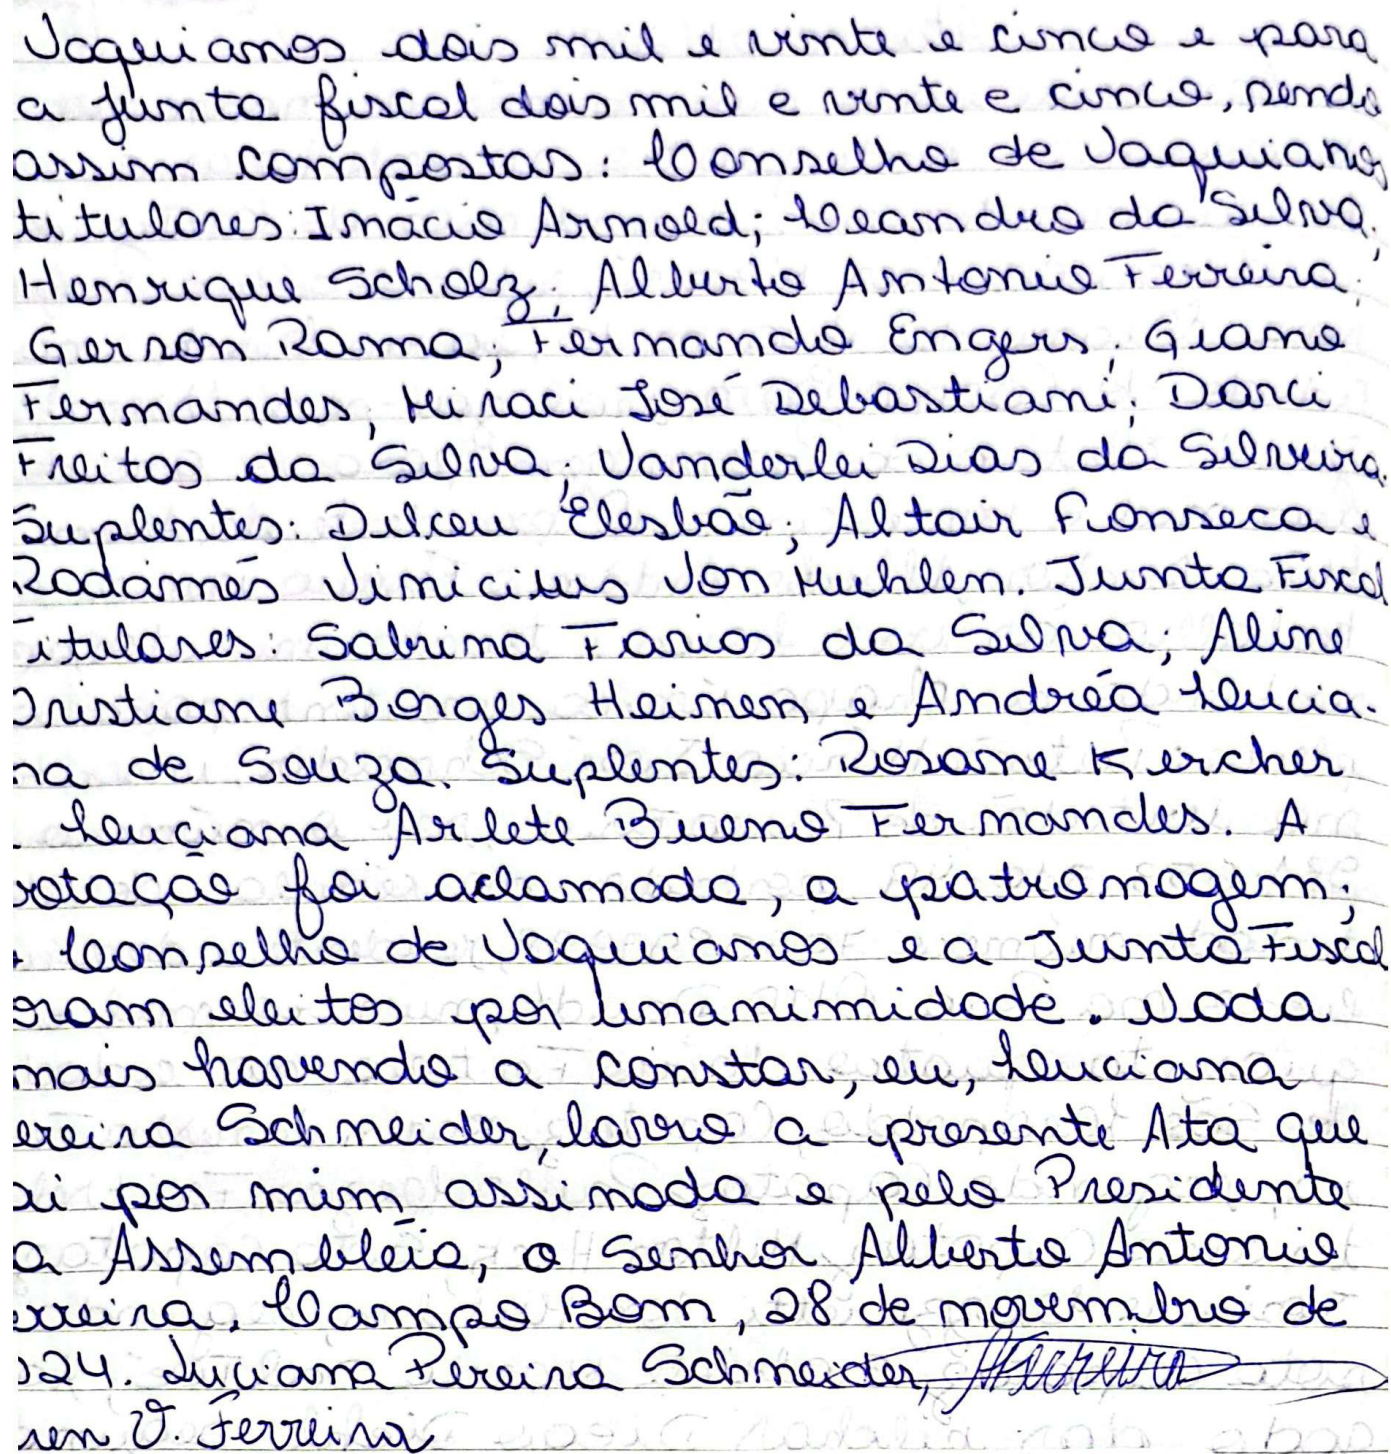 Vaquianos dois mil e vinte e cinco e para
a junta fiscal dois mil e vinte e cinco, sendo
assim compostas: Conselho de Vaquianos
titulares: Inácio Arnold; Leandro da Silva;
Henrique Scholz; Alberto Antonio Ferreira;
Gerson Rama; Fernando Engers; Giano
Fernandes; Miraci José Debastiani; Darci
Freitas da Silva; Vanderlei Dias da Silveira.
Suplentes: Dilceu Elesbão; Altair Fonseca e
Rodamés Vinicius Von Muhlen. Junta Fiscal
Titulares: Sabrina Farias da Silva; Aline
Cristiane Borges Heinen e Andréa Lucia-
na de Souza. Suplentes: Rosane Kercher
Luciana Arlete Bueno Fernandes. A
votação foi aclamada, a patronagem;
Conselho de Vaquianos e a Junta Fiscal
oram eleitos por unanimidade. Nada
mais havendo a constar, eu, Luciana
ereira Schneider, lavro a presente Ata que
ai por mim assinada e pelo Presidente
a Assembléia, o Senhor Alberto Antonio
erreira. Campo Bom, 28 de novembro de
024. Luciana Pereira Schneider, AFerreira
ren V. Ferreira